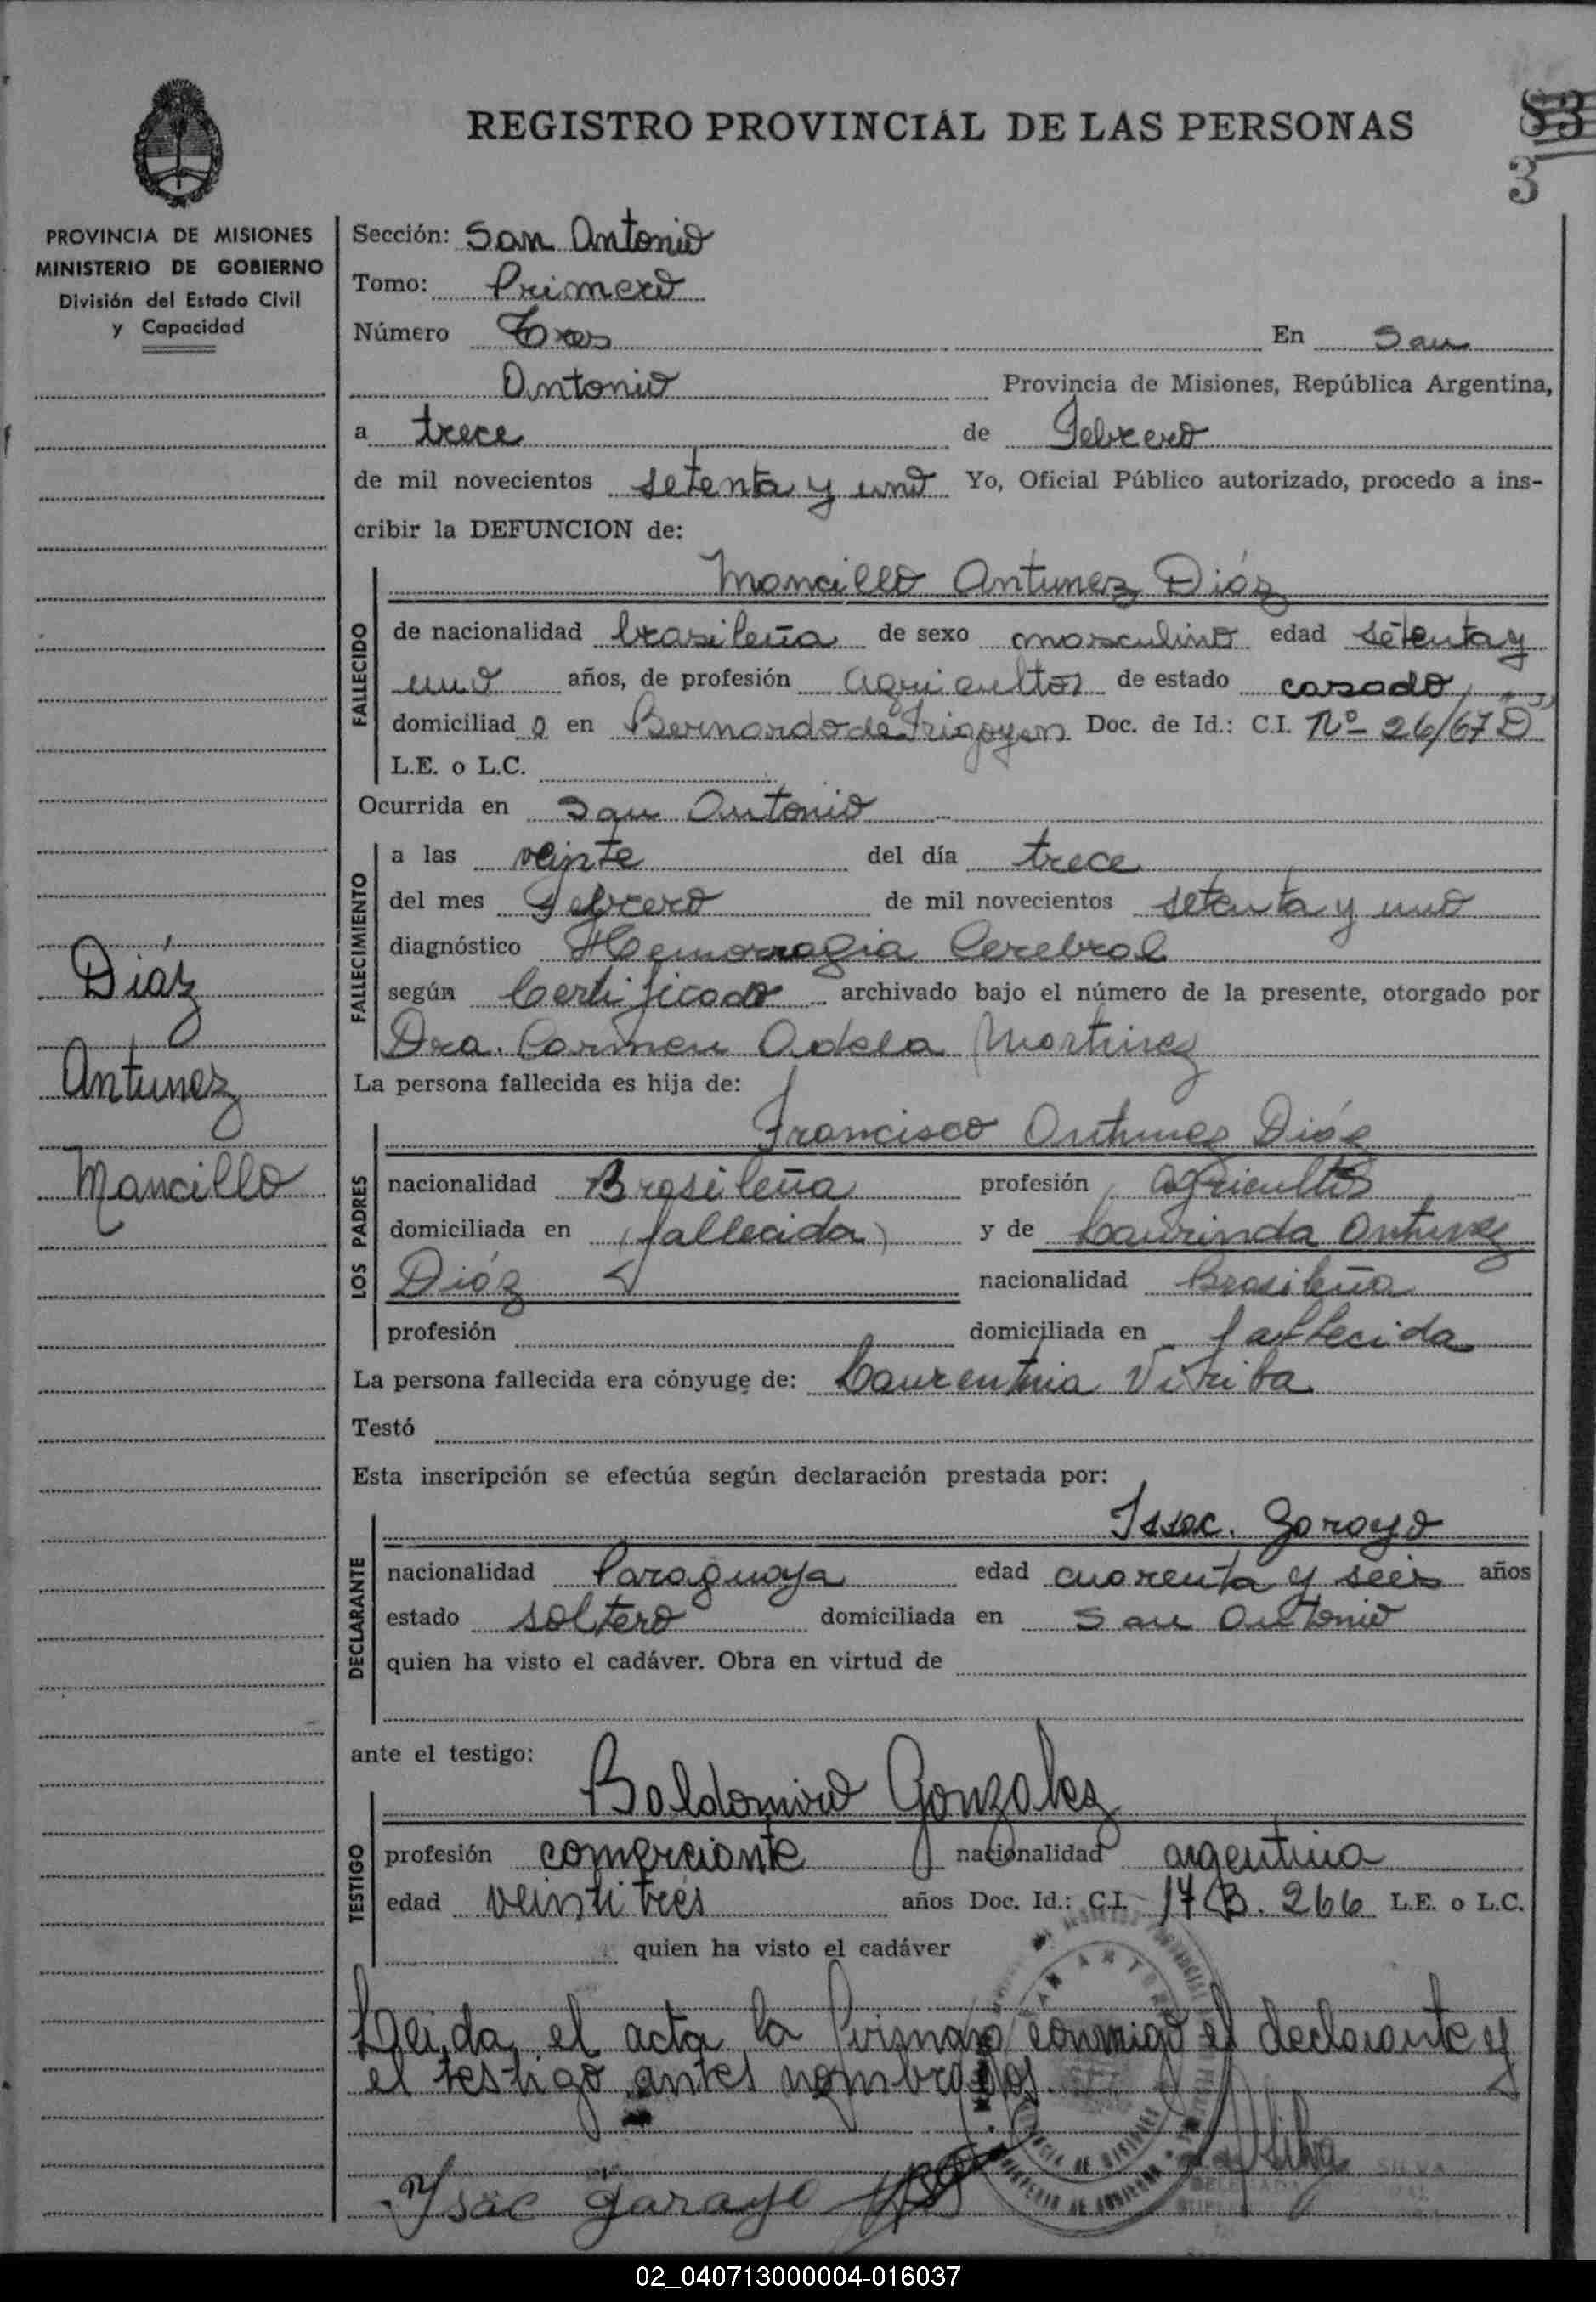 REGISTRO PROVINCIAL DE LAS PERSONAS
83
3
PROVINCIA DE MISIONES
MINISTERIO DE GOBIERNO
División del Estado Civil
y Capacidad
Díaz
Antunez
Mancillo
Sección: San Antonio
Tomo: Primero
Número Tres En San
Antonio Provincia de Misiones, República Argentina,
a trece de Febrero
de mil novecientos setenta y uno Yo, Oficial Público autorizado, procedo a ins-
cribir la DEFUNCION de:
Mancillo Antunez Diáz
FALLECIDO
de nacionalidad brasileña de sexo masculino edad setenta y
uno años, de profesión agricultor de estado casado
domiciliad o en Bernardo de Irigoyen Doc. de Id.: C.I. Nº 26/67 D
L.E. o L.C.
Ocurrida en San Antonio
FALLECIMIENTO
a las veinte del día trece
del mes Febrero de mil novecientos setenta y uno
diagnóstico Hemorragia Cerebral
según Certificado archivado bajo el número de la presente, otorgado por
Dra. Carmen Adela Martinez
La persona fallecida es hija de:
Francisco Antunez Diáz
LOS PADRES
nacionalidad Brasileña profesión agricultor
domiciliada en (fallecida) y de Laurinda Antunez
Diáz nacionalidad Brasileña
profesión domiciliada en fallecida
La persona fallecida era cónyuge de: Laurentina
Testó
Esta inscripción se efectúa según declaración prestada por:
Issac. Garayo
DECLARANTE
nacionalidad Paraguaya edad cuarenta y seis años
estado soltero domiciliada en San Antonio
quien ha visto el cadáver. Obra en virtud de
ante el testigo:
Baldomiro Gonzalez
TESTIGO
profesión comerciante nacionalidad argentina
edad veintitrés años Doc. Id.: C.I. 17 B. 266 L.E. o L.C.
quien ha visto el cadáver
Leida el acta la firman conmigo el declarante y
el testigo antes nombrados.
Ysac garayo
SILVA
02_040713000004-016037